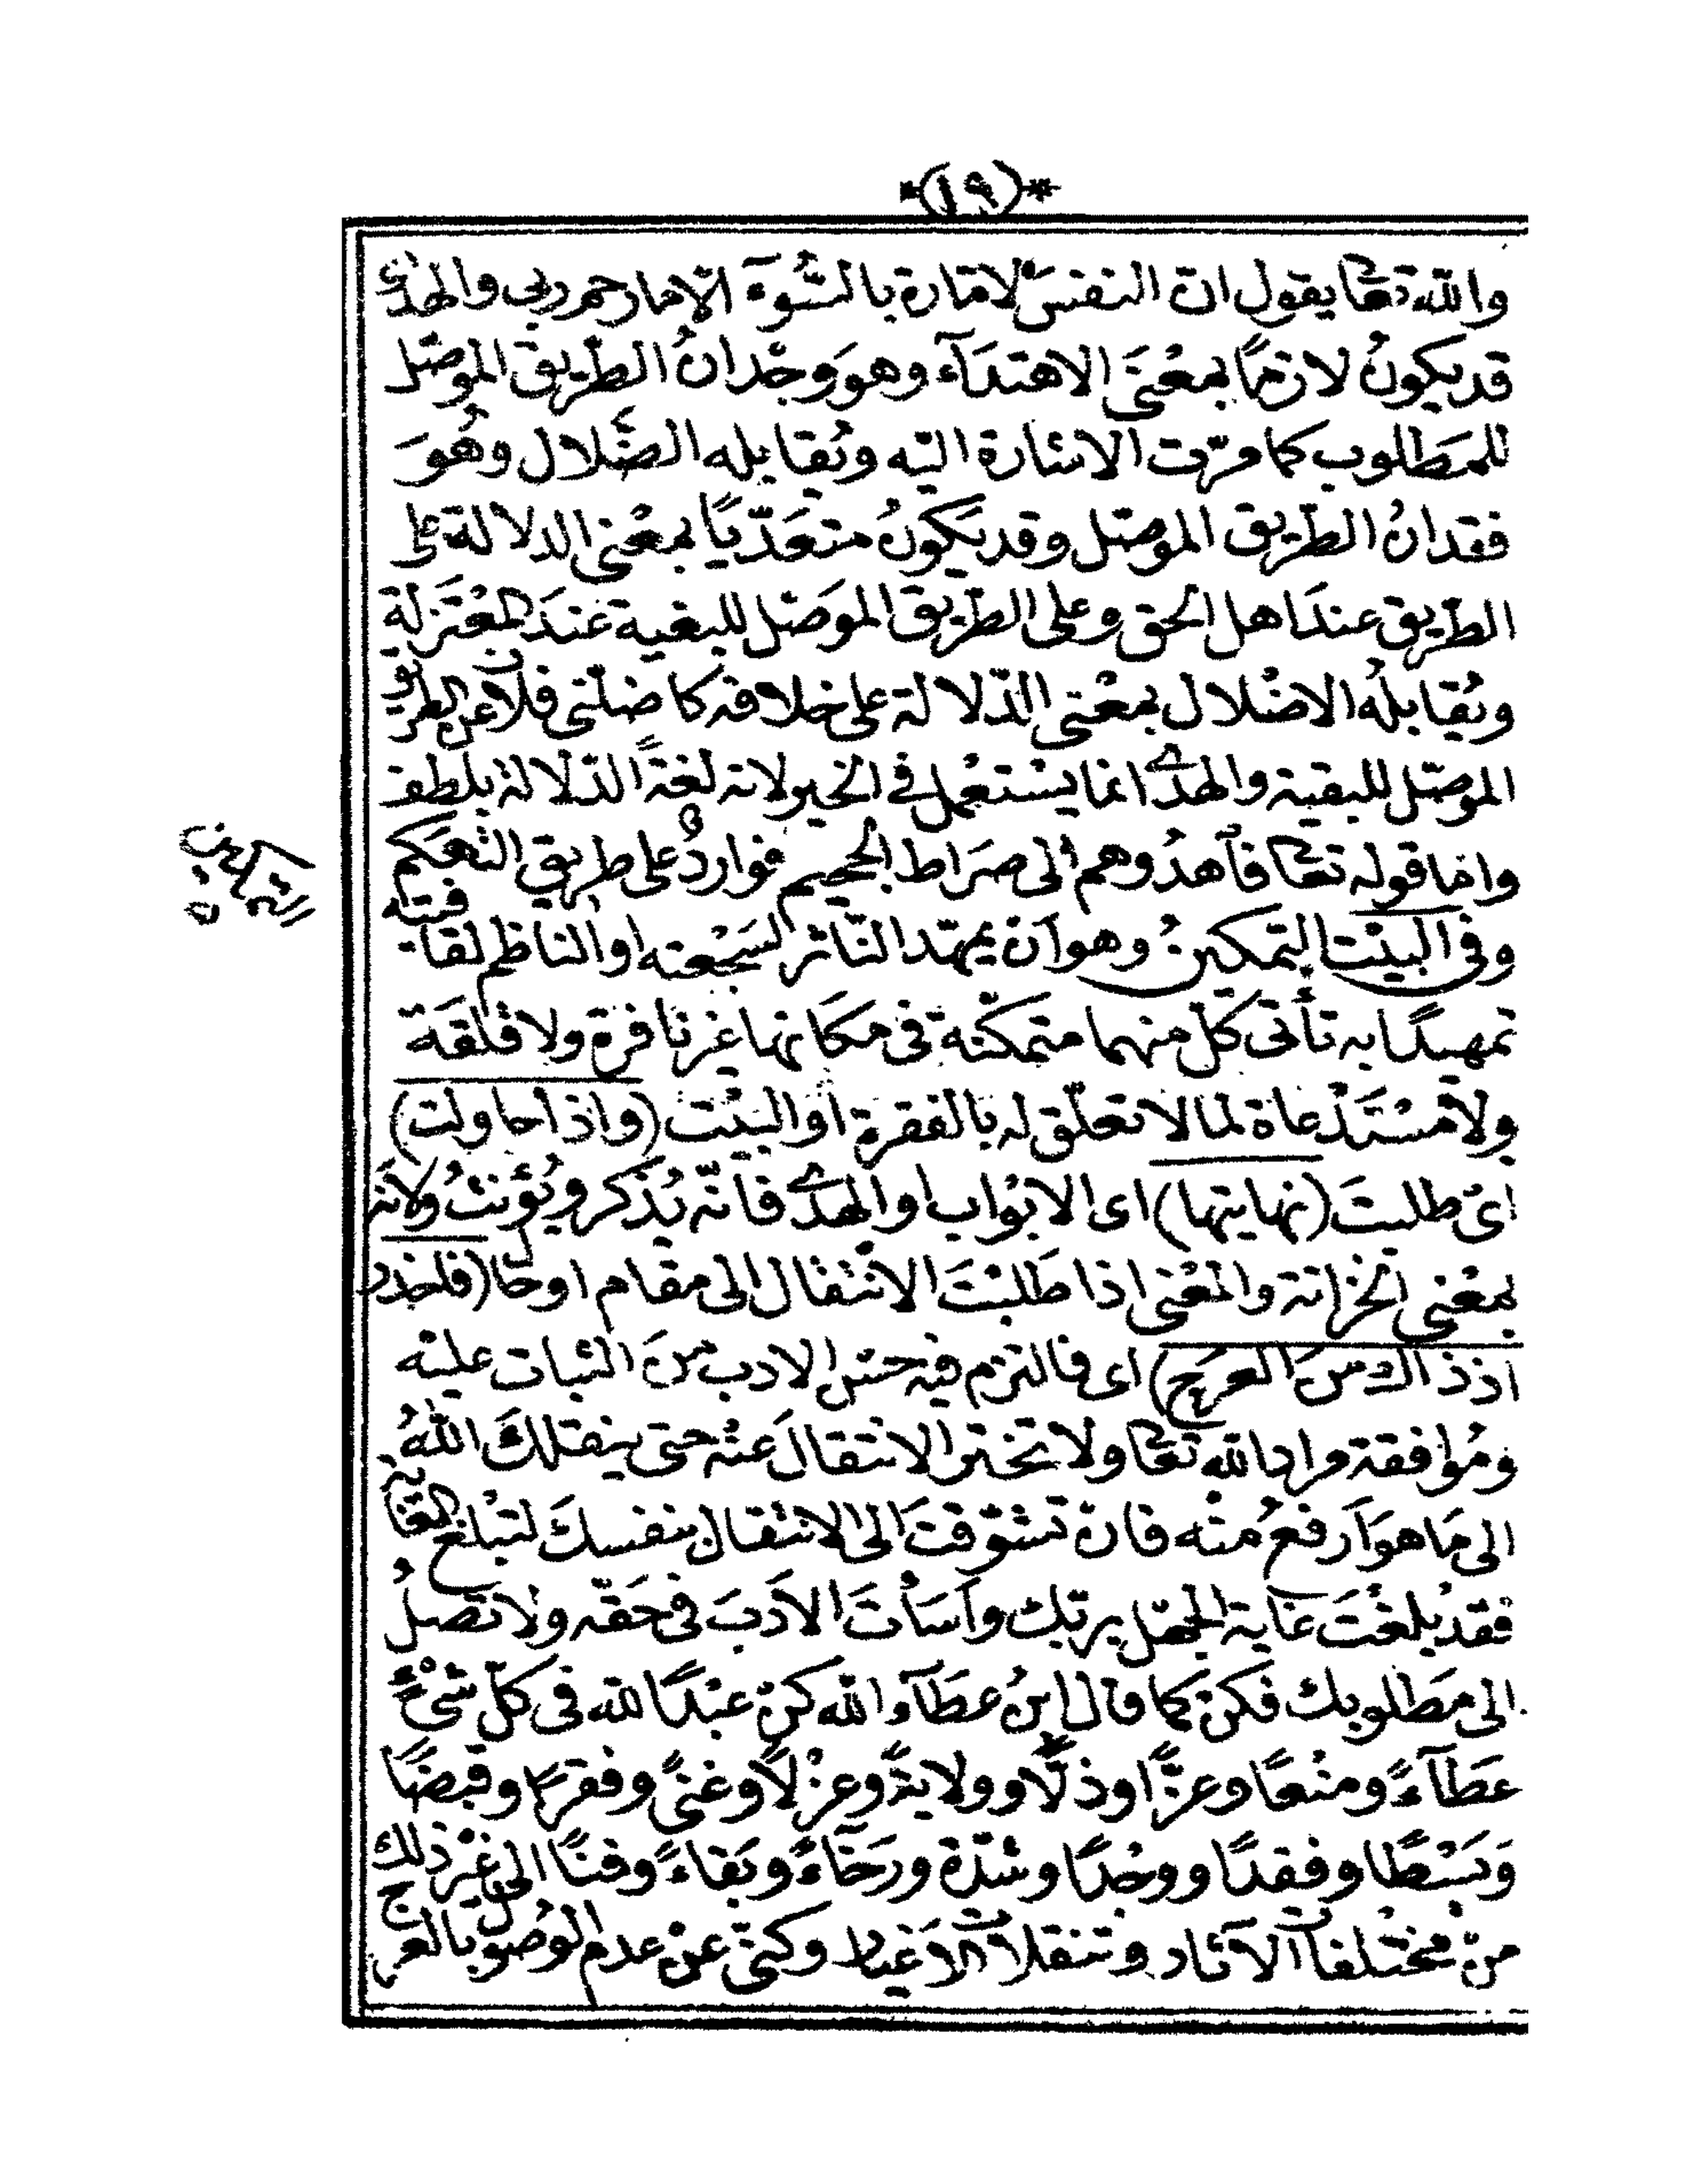 *(١٩)*
والله تعا يقول ان النفس لامّارة بالسُّوء الّا ما رحم ربي والهدى
قد يكونُ لازمًا بمعْنَى الاهتدَآء وهو وجْدانُ الطّريق الموصّل
للمَطلوب كما مرّت الاشارة اليْه ويُقابله الضَّلال وهُوَ
فقدانُ الطّريق الموصّل وقد يَكونُ متعَدّيًا بمعْنى الدلالة على
الطريق عندَ اهل الحق وعلى الطّريق الموَصّل للبغية عندَ المعْتَزلة
ويُقابلهُ الاضْلال بمعْنى الدّلالة على خلافه كاضلّنى فلان عن الطريق
الموصّل للبقية والهدى انما يسْتعْمل فى الخير لانه لغةً الدّلالة بلطف
واما قوله تعا فآهدُوهم الى صرَاط الجحيم فواردٌ على طريق التّهكم
فيته
وفى البيْت التمكينُ وهو أن يمهّد النّاثر لسَجْعته او الناظم لقا
التمكين
تمهيدًا به تأتى كلّ منهما متمكّنة فى مكانها غير نافرة ولا قلقَة
ولا مسْتَدْعاة لما لا تعلّق له بالفقرة او البيْت (واذا حاولت)
اىْ طلبتَ (نهايتها) اى الابْواب او الهدى فانّه يُذكر ويُؤنثُ ولانه
بمعْنى الخزانة والمعْنى اذا طَلبْتَ الانْتقال الى مقام او حا (فاحذر
اذ ذاك من العرَج) اى فالتزم فيه حسْن الادب منَ الثبات عليْه
ومُوافقة مراد الله تعا ولا تختر الانتقالَ عنْه حتى ينقلكَ اللهُ
الى مَا هوَ أرفعُ منْه فانْ تشوّقتَ الى الانْتقال بنفسكَ لتبْلغ الغاية
فقد بلغْتَ غاية الجهْل بربّك وأسَأْتَ الأدَبَ فى حَقّه ولا تصلُ
الى مَطلوبك فكنْ كما قال ابنُ عطَآء الله كنْ عبْدًا لله فى كلّ شىْءٍ
عَطآءً ومنْعًا وعزًّا وذلًّا وولايةً وعزْلًا وغنًى وفقرًا وقبضًا
وَبَسْطًا وفقدًا ووجْدًا وشدّة ورَخآءً وبَقاءً وفنًا الى غيْر ذلك
منْ مختلفات الآثار وتنقلات الاغيار وكنى عنْ عدم الوُصول بالعرج